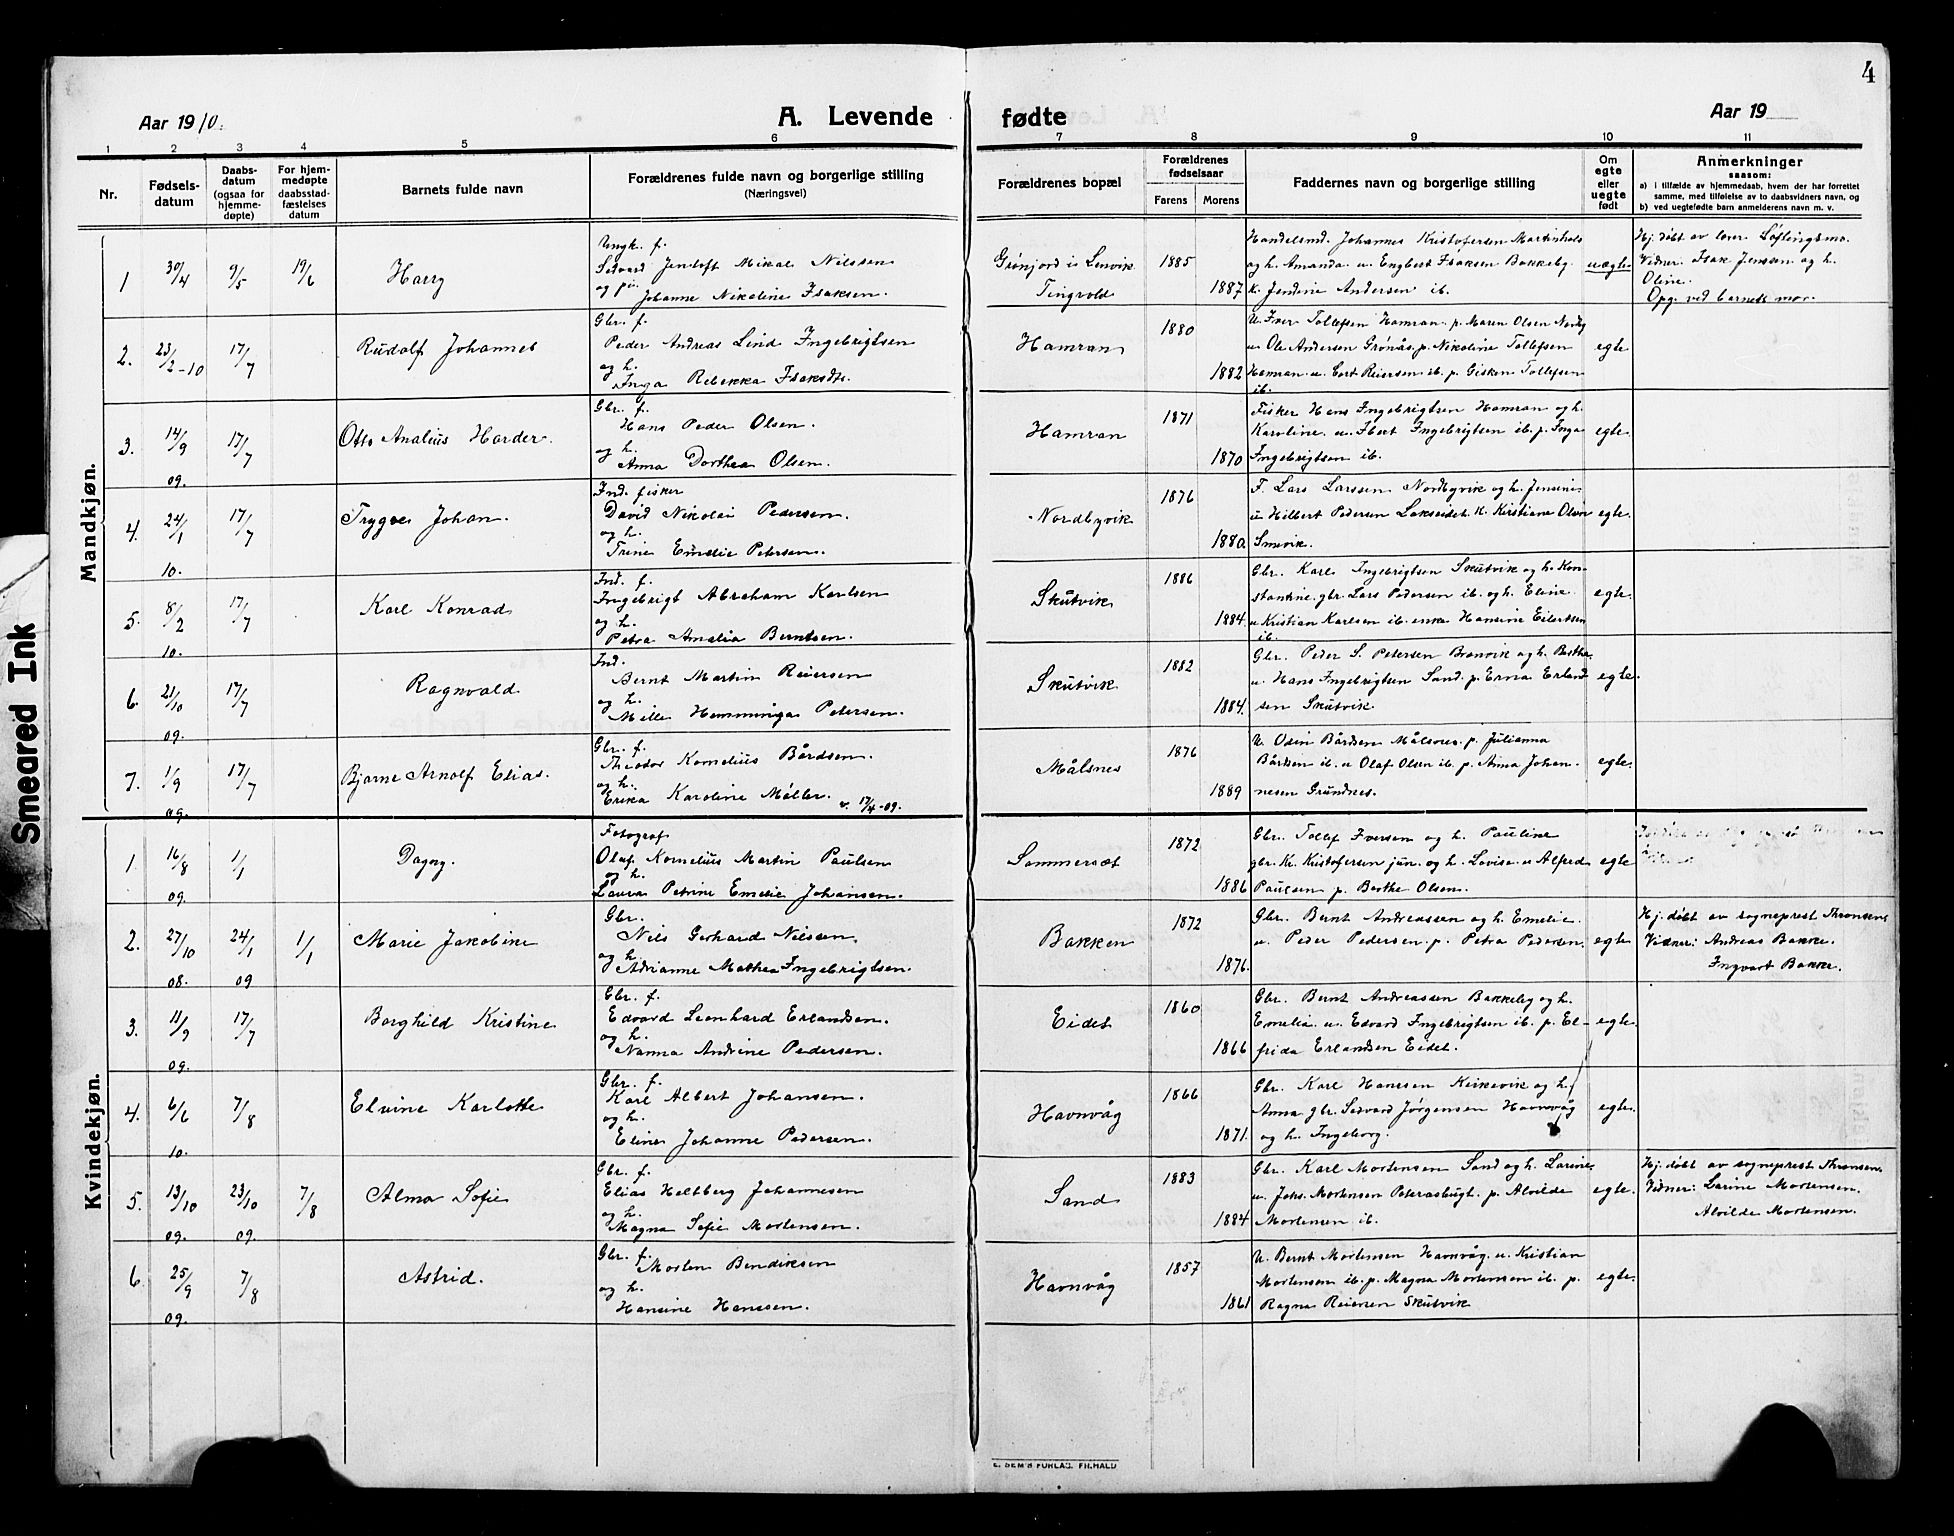 4
Aar 1910.
A. Levende fødte
Aar 19
1 2 3 4 5 6 7 8 9 10 11
Nr.
Fødsels-
datum
Daabs-
datum
(ogsaa for
hjemme-
døpte)
For hjem-
medøpte
daabsstad-
fæstelses
datum
Barnets fulde navn
Forældrenes fulde navn og borgerlige stilling
(Næringsvei)
Forældrenes bopæl
Forældrenes
fødselsaar
Farens Morens
Faddernes navn og borgerlige stilling
Om
egte
eller
uegte
født
Anmerkninger
saasom:
a) i tilfælde av hjemmedaab, hvem der har forrettet
samme, med tilføielse av to daabsvidners navn, og
b) ved uegtefødte barn anmelderens navn m. v.
Mandkjøn.
1 30/4 9/5 19/6 Harry
Ungk. f.
Sedvard Jentoft Mikal Nilssen
og pi.
Johanne Nikoline Isaksen.
Grønjord i Lenvik
Tingvold
1885
1887
Handelsmd. Johannes Kristofersen Martinhols
og h. Amanda. u. Engbert Isaksen Bakkeby.
k. Jendine Andersen ib.
uegte
Hj. døbt av lærer Løftingsmo.
Vidner: Isak Jenssen og h.
Oline.
Opg. ved barnets mor.
2. 23/2-10 17/7 Rudolf Johannes
Gbr. f.
Peder Andreas Lind Ingebrigtsen
og h.
Inga Rebekka Isaksdtr.
Hamran
1880
1882
U. Iver Tollefsen Hamran. p. Maren Olsen Nordby
u. Ole Andersen Grønås. p. Nikoline Tollefsen
Hamran. u. Cort Reiersen ib. p. Gisken Tollefsen
ib.
egte
3. 14/9 09. 17/7 Otto Analius Harder.
Gbr. f.
Hans Peder Olsen.
og h.
Anna Dorthea Olsen.
Hamran
1871
1870
Fisker Hans Ingebrigtsen Hamran og h.
Karoline. u. Ibert Ingebrigtsen ib. p. Inga
Ingebrigtsen ib.
egte.
4. 24/1 10. 17/7 Trygve Johan.
Ind. fisker
David Nikolai Pedersen.
og h.
Trine Emelie Petersen.
Nordbyvik
1876
1880.
F. Lars Larssen Nordbyvik og h. Jensine
u. Hilbert Pedersen Lakseidet. k. Kristiane Olsen
Smevik.
egte.
5. 8/2 10. 17/7 Karl Konrad
Ind. f.
Ingebrigt Abraham Karlsen
og h.
Petra Amalia Berntsen.
Skutvik
1886
1884.
Gbr. Karl Ingebrigtsen Skutvik og h. Kon-
stantine. gbr. Lars Pedersen ib. og h. Eline.
u. Kristian Karlsen ib. enke Hansine Eilertsen
ib.
egte.
6. 21/10 09. 17/7 Ragnvald
Ind.
Bernt Martin Reiersen
og h.
Mille Hemminga Petersen.
Skutvik
1882
1884.
Gbr. Peder S. Petersen Brænvik og h. Berthe
u. Hans Ingebrigtsen Sand. p. Erna Erland
sen Skutvik.
egte.
7. 1/9 09. 17/7 Bjarne Arnolf Elias.
Gbr. f.
Theodor Kornelius Bårdsen.
og h.
Erika Karoline Møller. v. 17/4-09.
Målsnes
1876
1889
U. Odin Bårdsen Målsnes. p. Julianna
Bårdsen ib. u. Olaf Olsen ib. p. Anna Johan-
nesen Grundnes.
egte.
Kvindekjøn.
1. 16/8 09. 1/1 Dagny.
Fotograf
Olaf Kornelius Martin Paulsen
og h.
Laura Petrine Emelie Johansen.
Sommersæt
1872
1886
Gbr. Tollef Iversen og h. Pauline
gbr. Kr. Kristofersen jun. og h. Lovise. u. Alfred
Paulsen p. Berthe Olsen.
egte
2. 27/10 08. 24/1 09 1/1 Marie Jakobine
Gbr.
Nils Gerhard Nilssen.
og h.
Adrianne Mathea Ingebrigtsen.
Bakken
1872
1876.
Gbr. Bernt Andreassen og h. Emelie.
u. Peder Pedersen. p. Petra Pedersen.
egte.
Hj. døbt av sogneprest Thronsen
Vidner: Andreas Bakke.
Ingvart Bakke.
3. 11/9 09. 17/7 Borghild Kristine
Gbr. f.
Edvard Leonhard Erlandsen.
og h.
Nanna Andrine Pedersen.
Eidet
1860
1866
Gbr. Bernt Andreassen Bakkeby og h.
Emelia. u. Edvard Ingebrigtsen ib. p. El-
frida Erlandsen Eidet.
egte.
4. 6/6 10. 7/8 Elvine Karlotte
Gbr. f.
Karl Albert Johansen.
og h.
Eline Johanne Pedersen.
Havnvåg
1866
1871.
Gbr. Karl Hanssen Kirkevik og h.
Anna gbr. Sedvard Jørgensen Havnvåg
og h. Ingeborg.
egte.
5. 13/10 09. 23/10 09. 7/8 Alma Sofie
Gbr. f.
Elias Heltberg Johannesen
og h.
Magna Sofie Mortensen.
Sand
1883
1884
Gbr. Karl Mortensen Sand og h. Larine
u. Johs. Mortensen Petersbugt. p. Alvilde
Mortensen ib.
egte.
Hj. døbt av sogneprest Thronsen.
Vidner: Larine Mortensen.
Alvilde Mortensen.
6. 25/9 09. 7/8 Astrid.
Gbr. f.
Morten Bendiksen
og h.
Hansine Hanssen.
Havnvåg
1857
1861
U. Bernt Mortensen Havnvåg. u. Kristian
Mortensen ib. p. Magna Mortensen ib. p.
Ragna Reiersen Skutvik
egte.
E. SEM'S FORLAG. FR.HALD
Smeared Ink